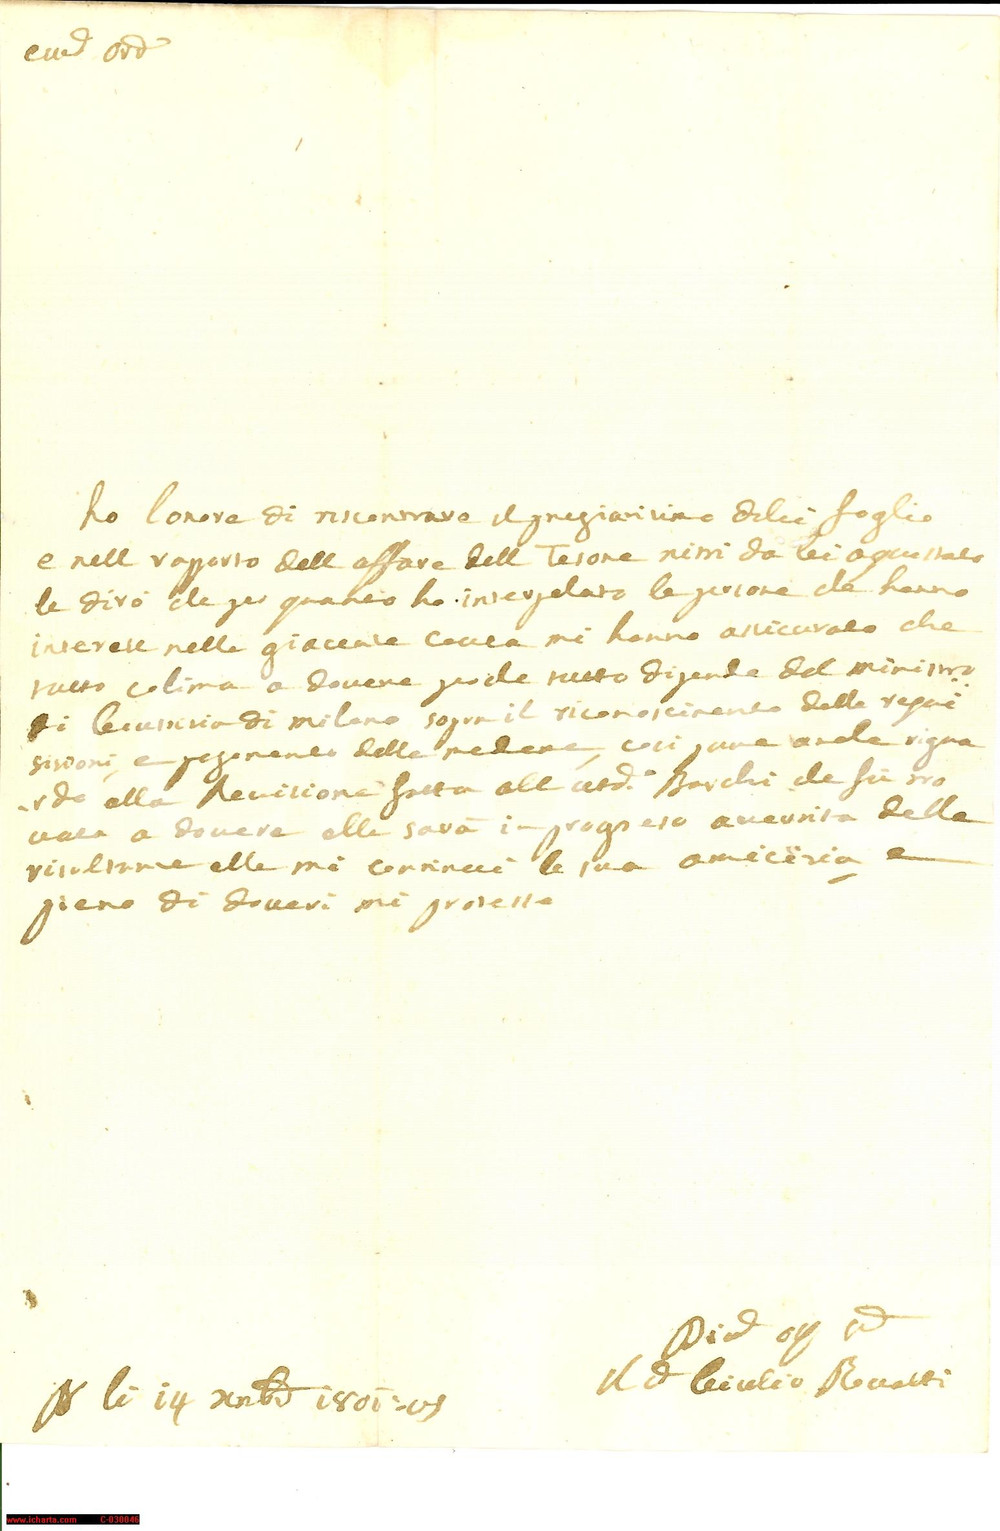 ho l'onore di riscontrare il pregiatisimo di lei foglio
e nell rapporto dell affare dell Tesone nisri da lei aquistato
le dirò che per quanto ho interpelato le persone che hanno
interese nella giacente causa mi hanno assicurato che
tutto colima a dovere poiche tutto dipende dal ministro
di Giustizia di milano sopra il riconoscimento delle requi
sisioni, e pagamento delle medeme, cosi pure anche rigua
rdo alla Revisione fatta all Barchi che fù tro
vata a dovere ella sarà in progreso avertita della
risultanza ella mi continui la sua amicizia e
pieno di doveri mi protesto
li 14 1801
Giulio Rovatti
www.icharta.com C-030046